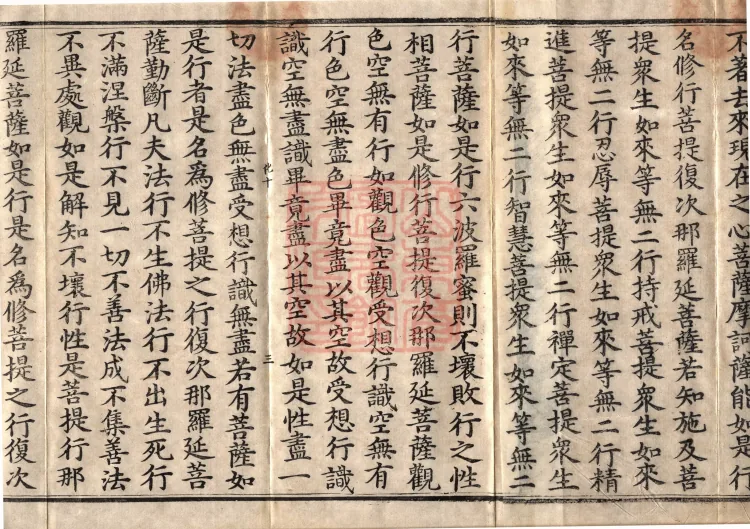 不著去來現在之心菩薩摩訶薩能如是行
名修行菩提復次那羅延菩薩若知施及菩
提衆生如來等無二行持戒菩提衆生如來
等無二行忍辱菩提衆生如來等無二行精
進菩提衆生如來等無二行禪定菩提衆生
如來等無二行智慧菩提衆生如來等無二
行菩薩如是行六波羅蜜則不壞敗行之性
相菩薩如是修行菩提復次那羅延菩薩觀
色空無有行如觀色空觀受想行識空無有
行色空無盡色畢竟盡以其空故受想行識
識空無盡識畢竟盡以其空故如是性盡一
十 三
切法盡色無盡受想行識無盡若有菩薩如
是行者是名爲修菩提之行復次那羅延菩
薩勤斷凡夫法行不生佛法行不出生死行
不滿涅槃行不見一切不善法成不集善法
不異處觀如是解知不壞行性是菩提行那
羅延菩薩如是行是名爲修菩提之行復次